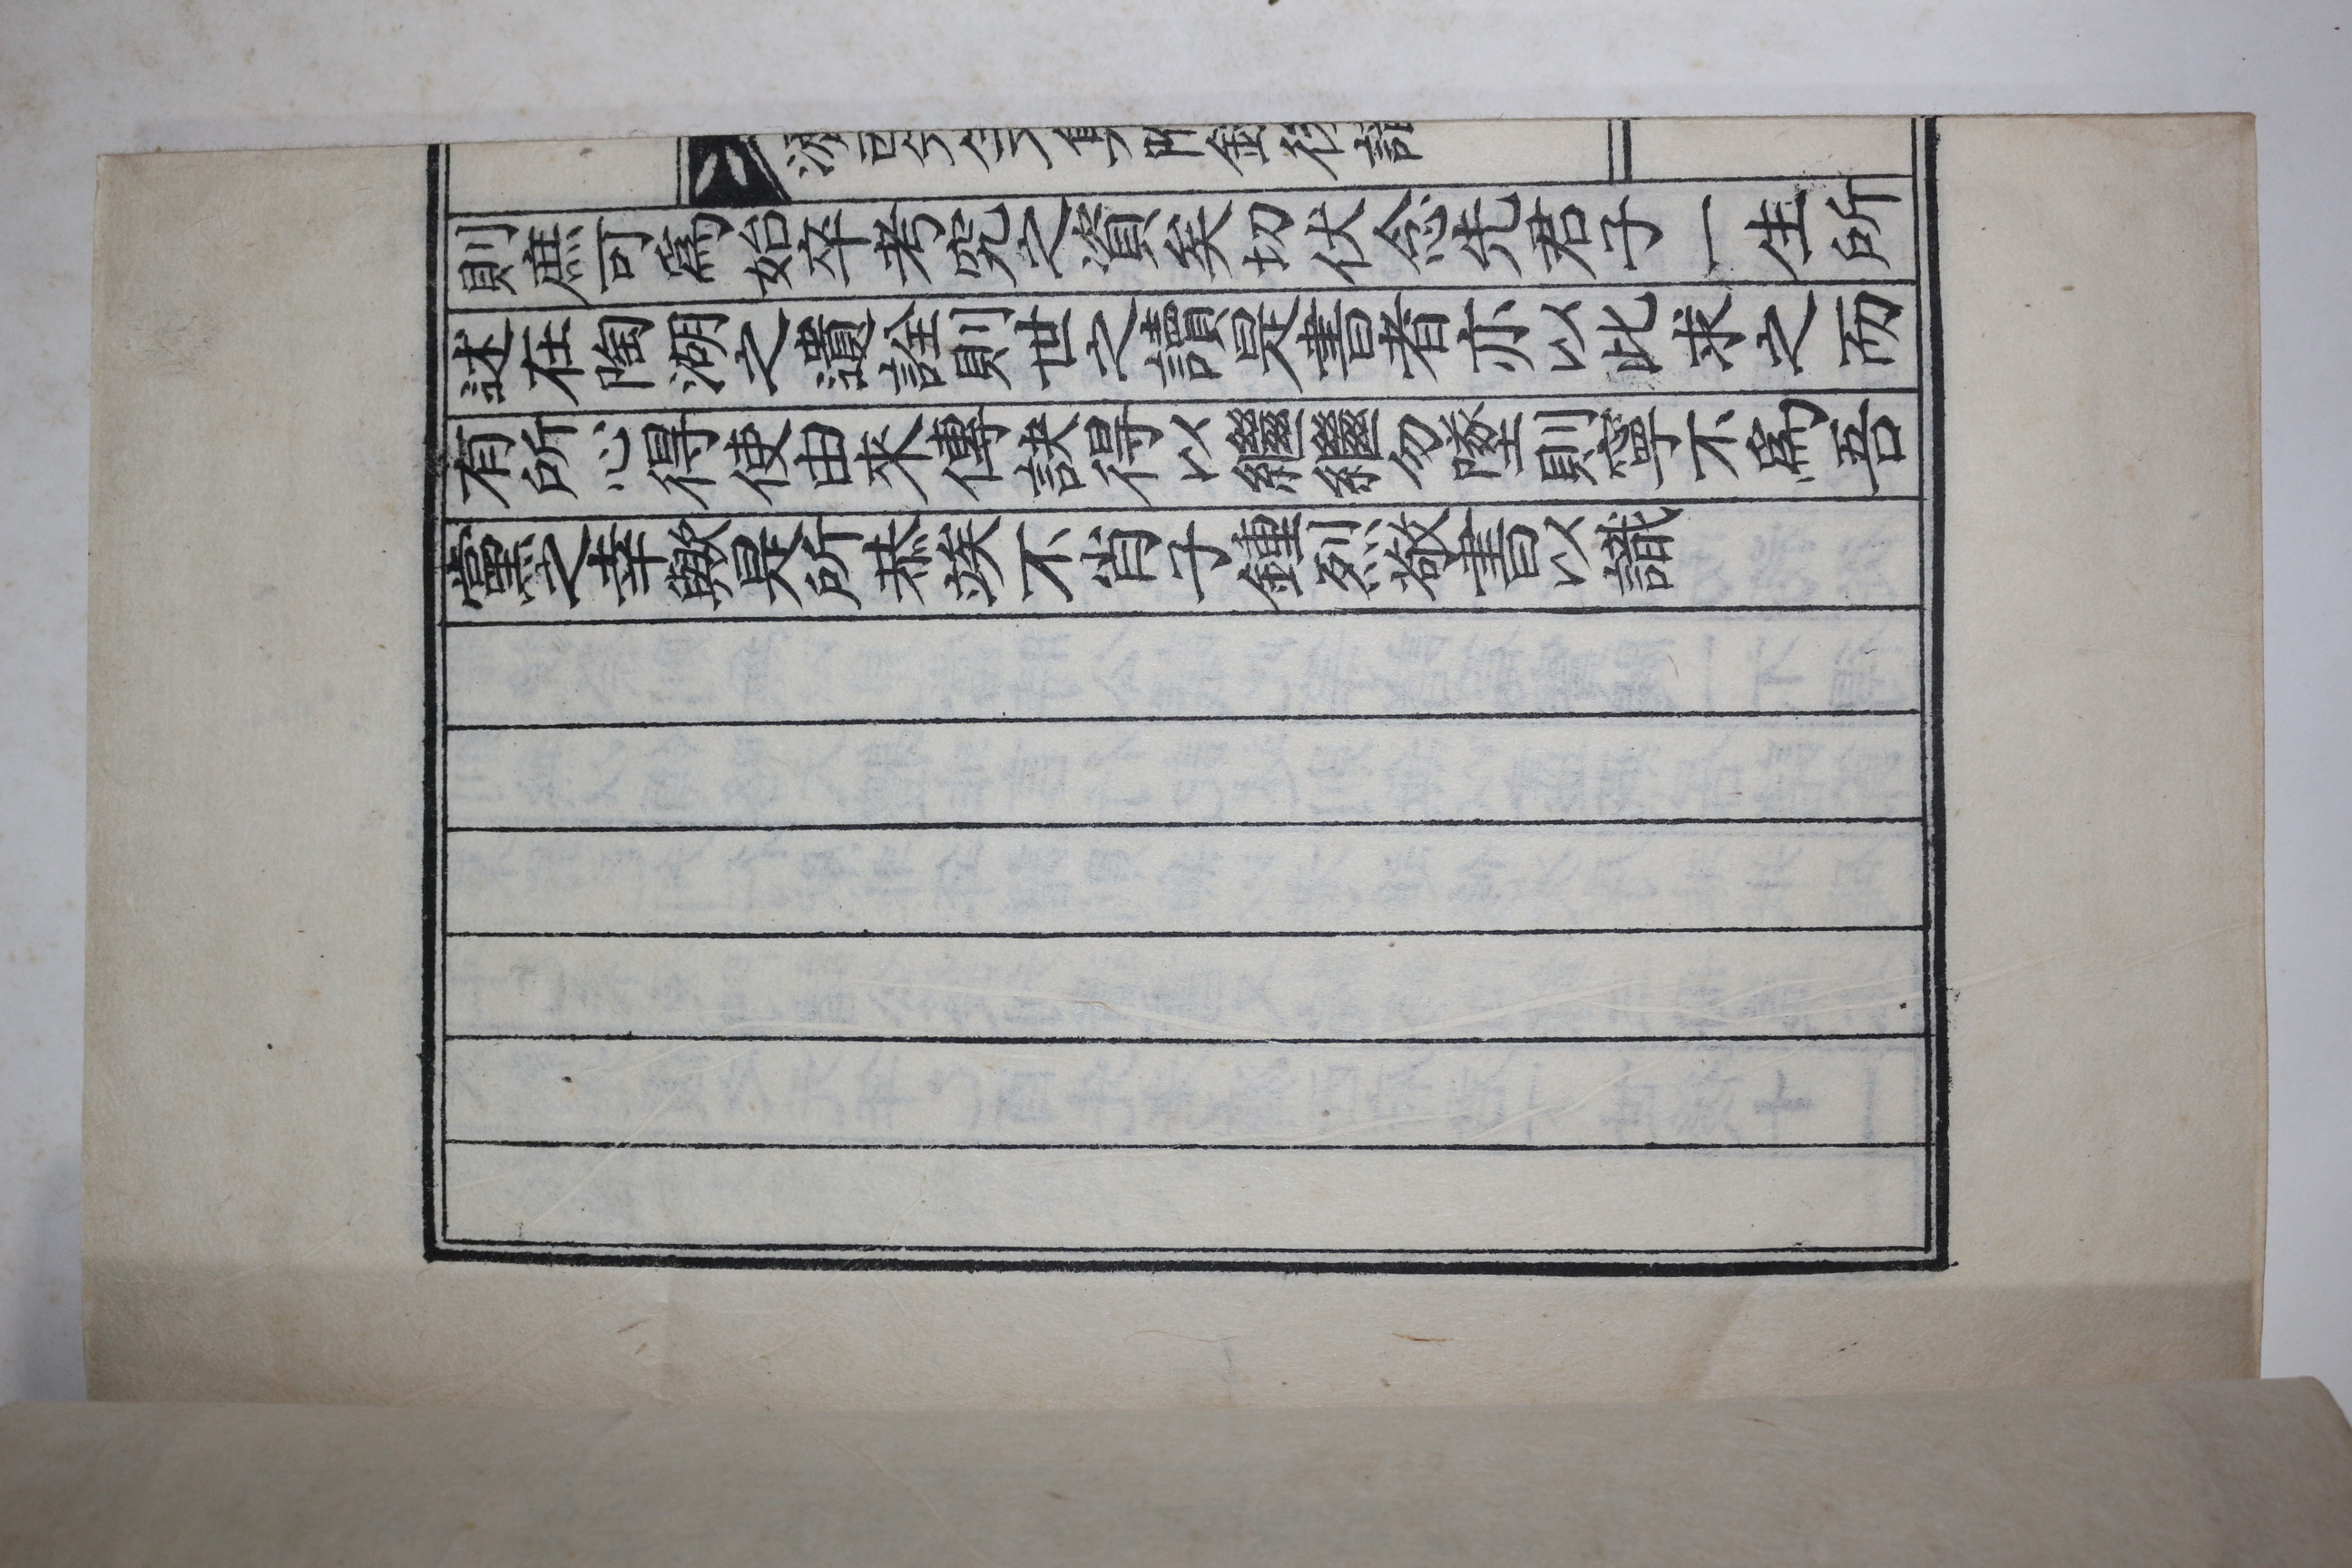 則庶可爲始卒考究之資矣切伏念先君子一生所
述在陶湖之遺詮則世之讀是書者亦以此求之而
有所心得使由來傳訣得以繼繼勿墜則寧不爲吾
黨之幸歟是所恭竢不肖子鍾烈敬書以識